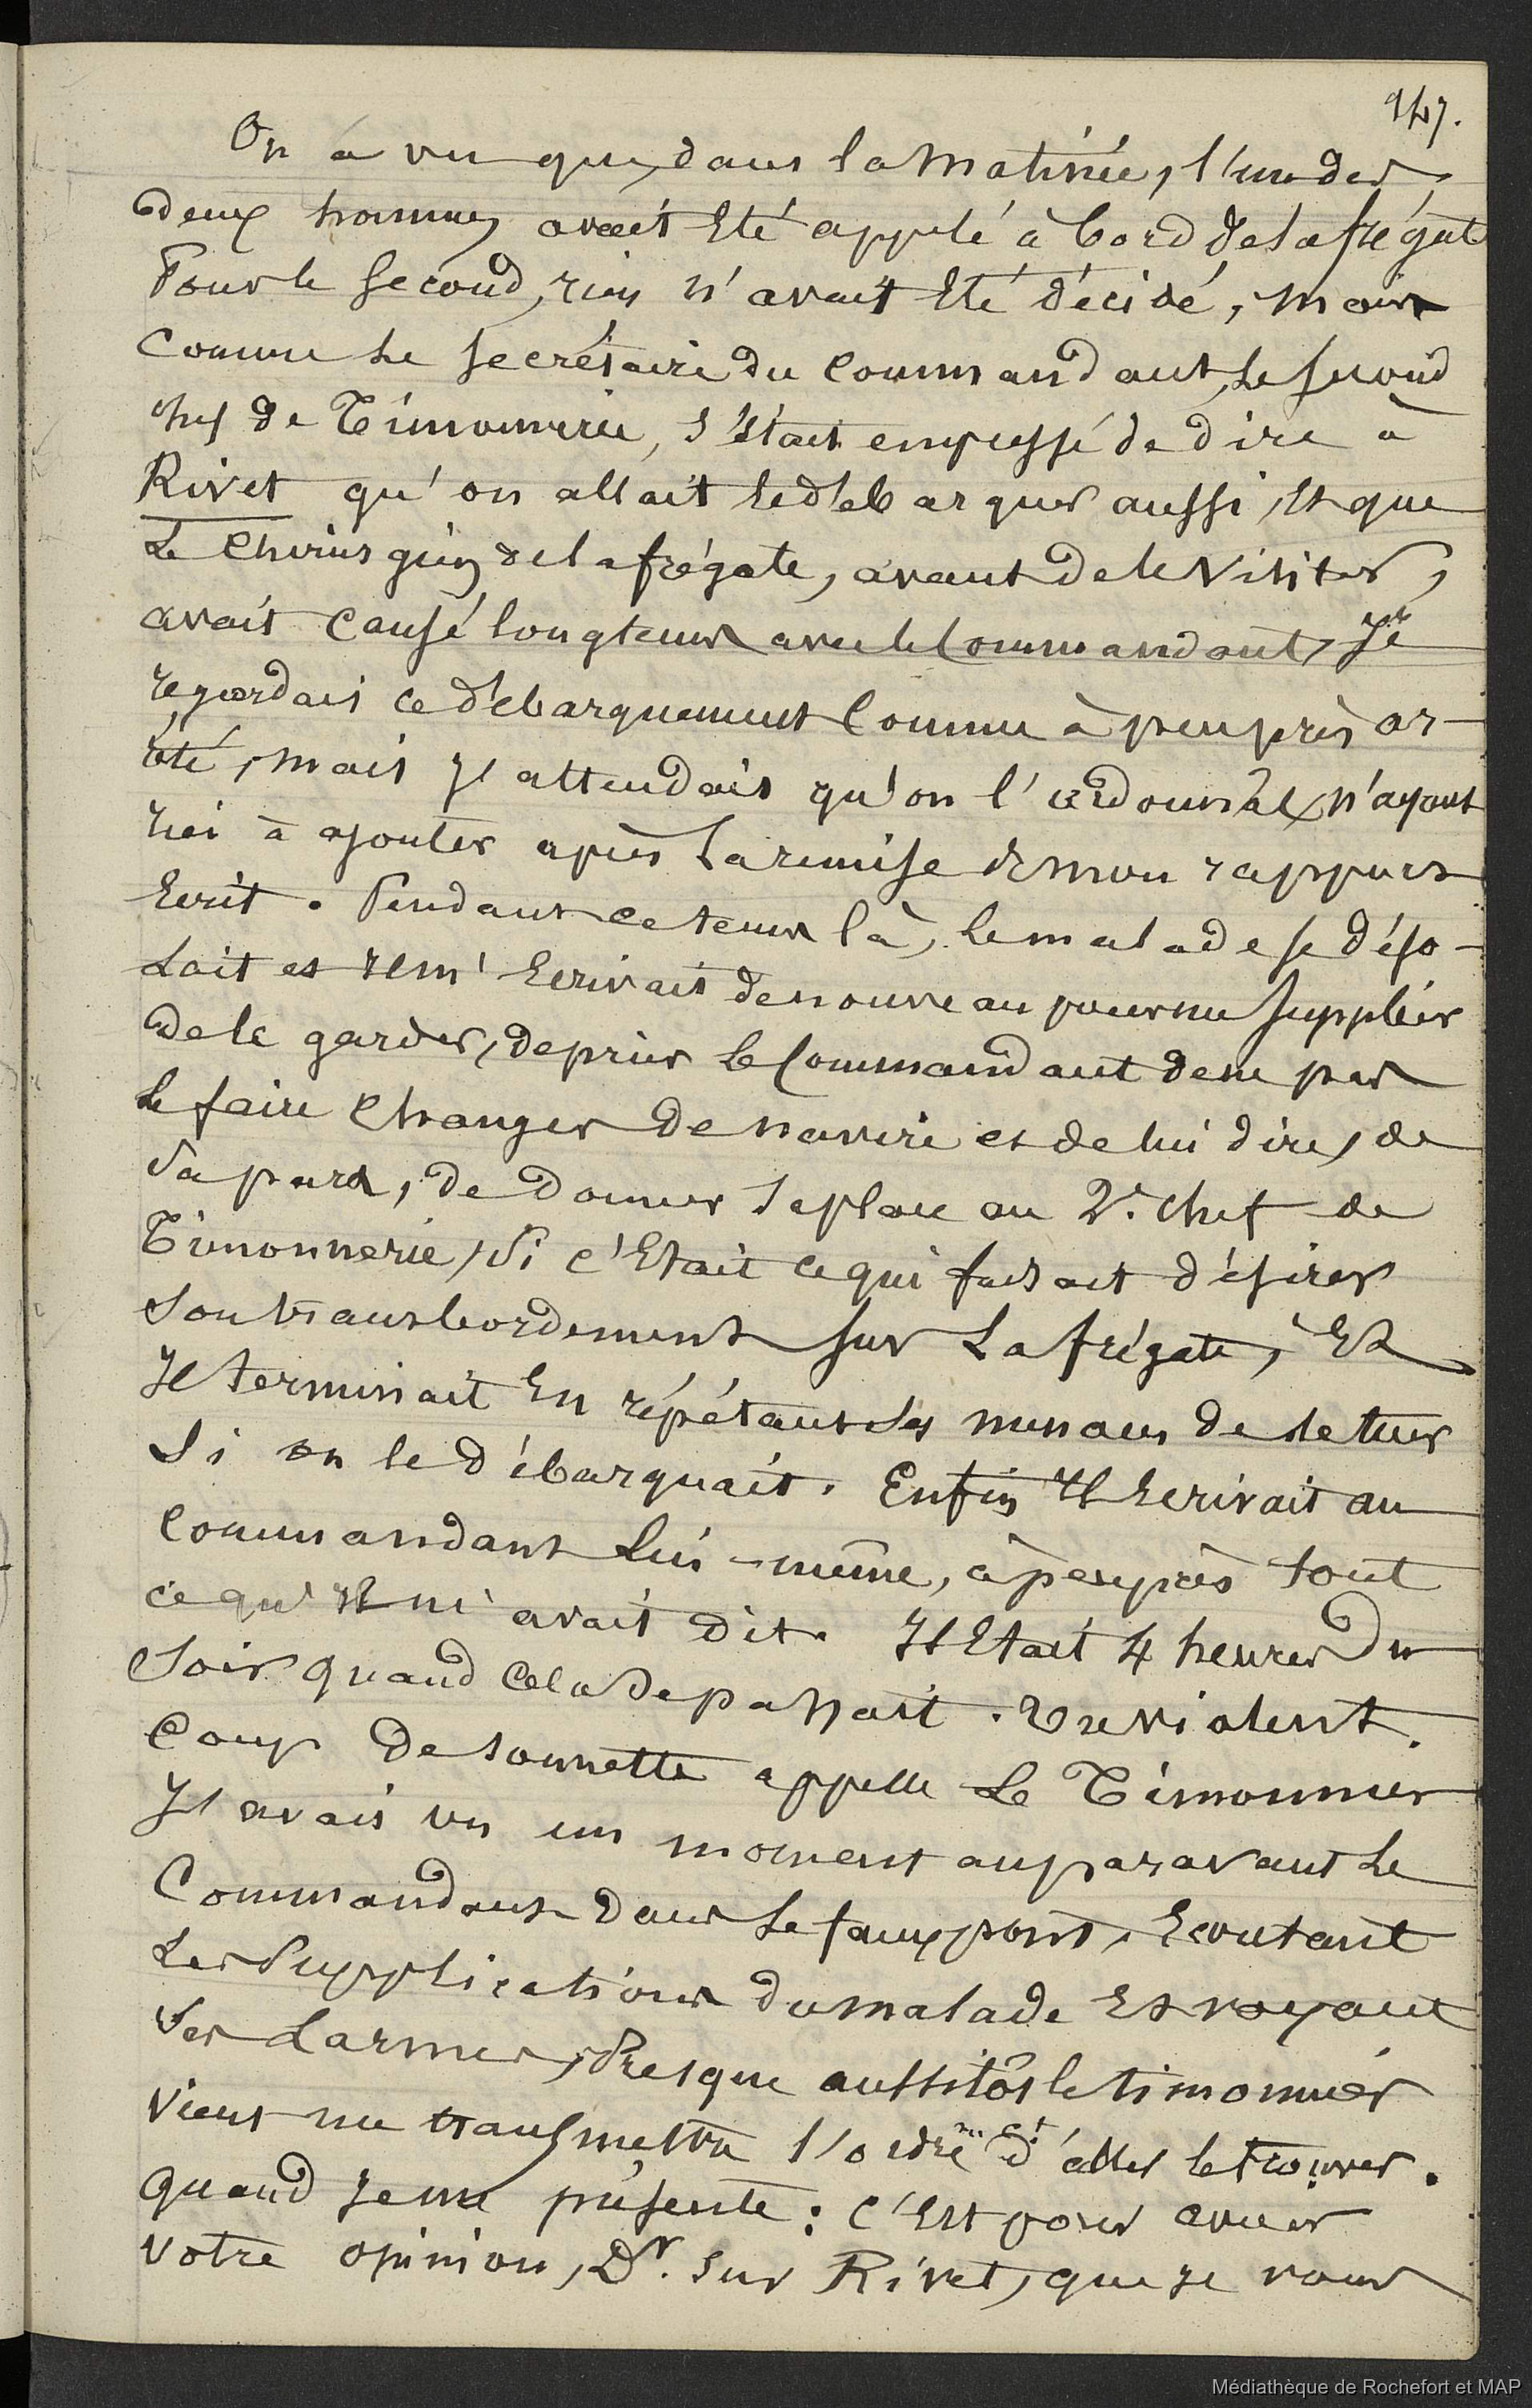 247.
On a vu que, dans la matinée, l'un des
deux hommes avait Eté appelé à bord de la frégate
Pour le second, rien n'avait Eté décidé, mais
comme Le secrétaire du commandant, Le second
chef de Timonnerie, s'était empressé de dire à
Rivet qu'on allait le débarquer aussi, Et que
Le chirurgien de la frégate, avant de le visiter,
avait causé longtems avec le Commandant, Je
regardais ce débarquement comme à peu près ar-
rêté, mais J'attendais qu'on l'ordonnât, n'ayant
rien à ajouter après La remise de mon rapport
Ecrit. Pendant ce tems là, Le malade se déso-
Lait et Il m'Ecrivait de nouveau pour me supplier
de le garder, de prier Le Commandant de ne pas
Le faire changer de navire et de lui dire, de
sa part, de donner sa place au 2e. chef de
Timonnerie, si c'Etait ce qui faisait désirer
son transbordement sur La frégate, Et
Il terminait En répétant ses menaces de se tuer
si on le débarquait. Enfin Il Ecrivait au
commandant Lui-même, à peu près tout
ce qu'Il m'avait dit. Il Etait 4 heures du
soir quand cela se passait. Un violent
coup de sonnette appelle Le Timonnier
J'avais vu un moment auparavant Le
Commandant dans Le faux pont, Ecoutant
Les supplications du malade Et voyant
ses Larmes, Presque aussitôt le timonnier
vient me transmettre l'ordre d'aller le trouver.
quand Je me présente : C'Est pour avoir
votre opinion, Dr. sur Rivet, que je vous
Médiathèque de Rochefort et MAP